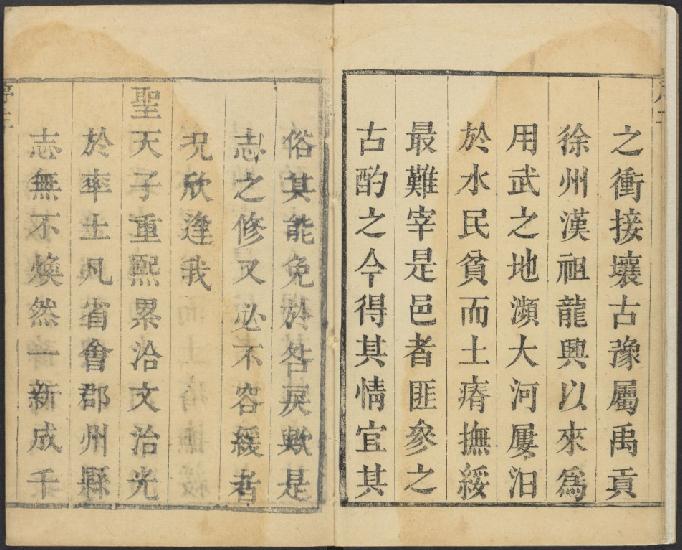 之衝接壤古豫屬禹貢
徐州漢祖龍興以來為
用武之地瀕大河屢汨
於水民貧而土瘠撫綏
最難宰是邑者匪參之
古酌之今得其情宜其
俗其能免於咎戾歟是
志之修又必不容緩者
況欣逢我
聖天子重熙累洽文治光
於率土凡省會郡州縣
志無不煥然一新成千